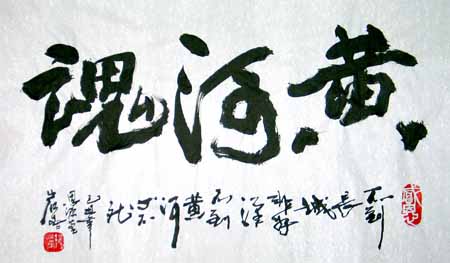 黄河魂
不到長城非好漢不到黄河心不死
感恩